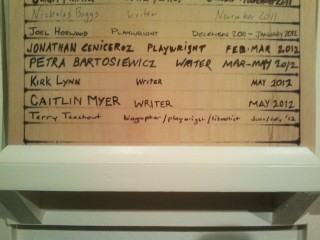 Nickolas Boggs Writer November 2011
Joel Horwood Playwright December 2011 - January 2012
Jonathan Ceniceroz Playwright Feb-Mar 2012
Petra Bartosiewicz Writer Mar-May 2012
Kirk Lynn Writer May 2012
Caitlin Myer Writer May 2012
Terry Teachout biographer/playwright/librettist June/July '12